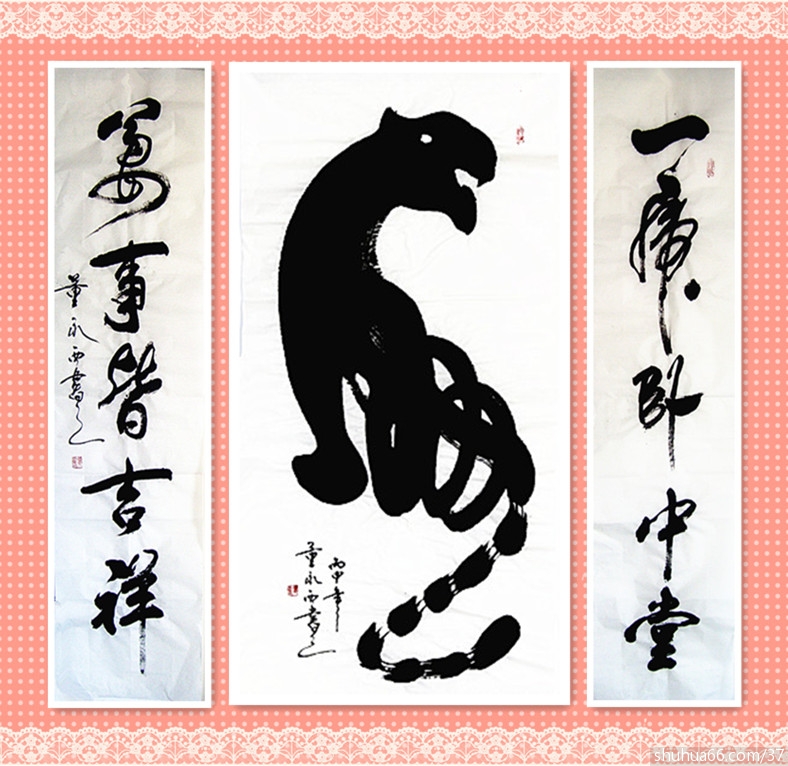 一虎卧中堂
丙申年
董永西書
萬事皆吉祥
董永西書
shuhua66.com/37